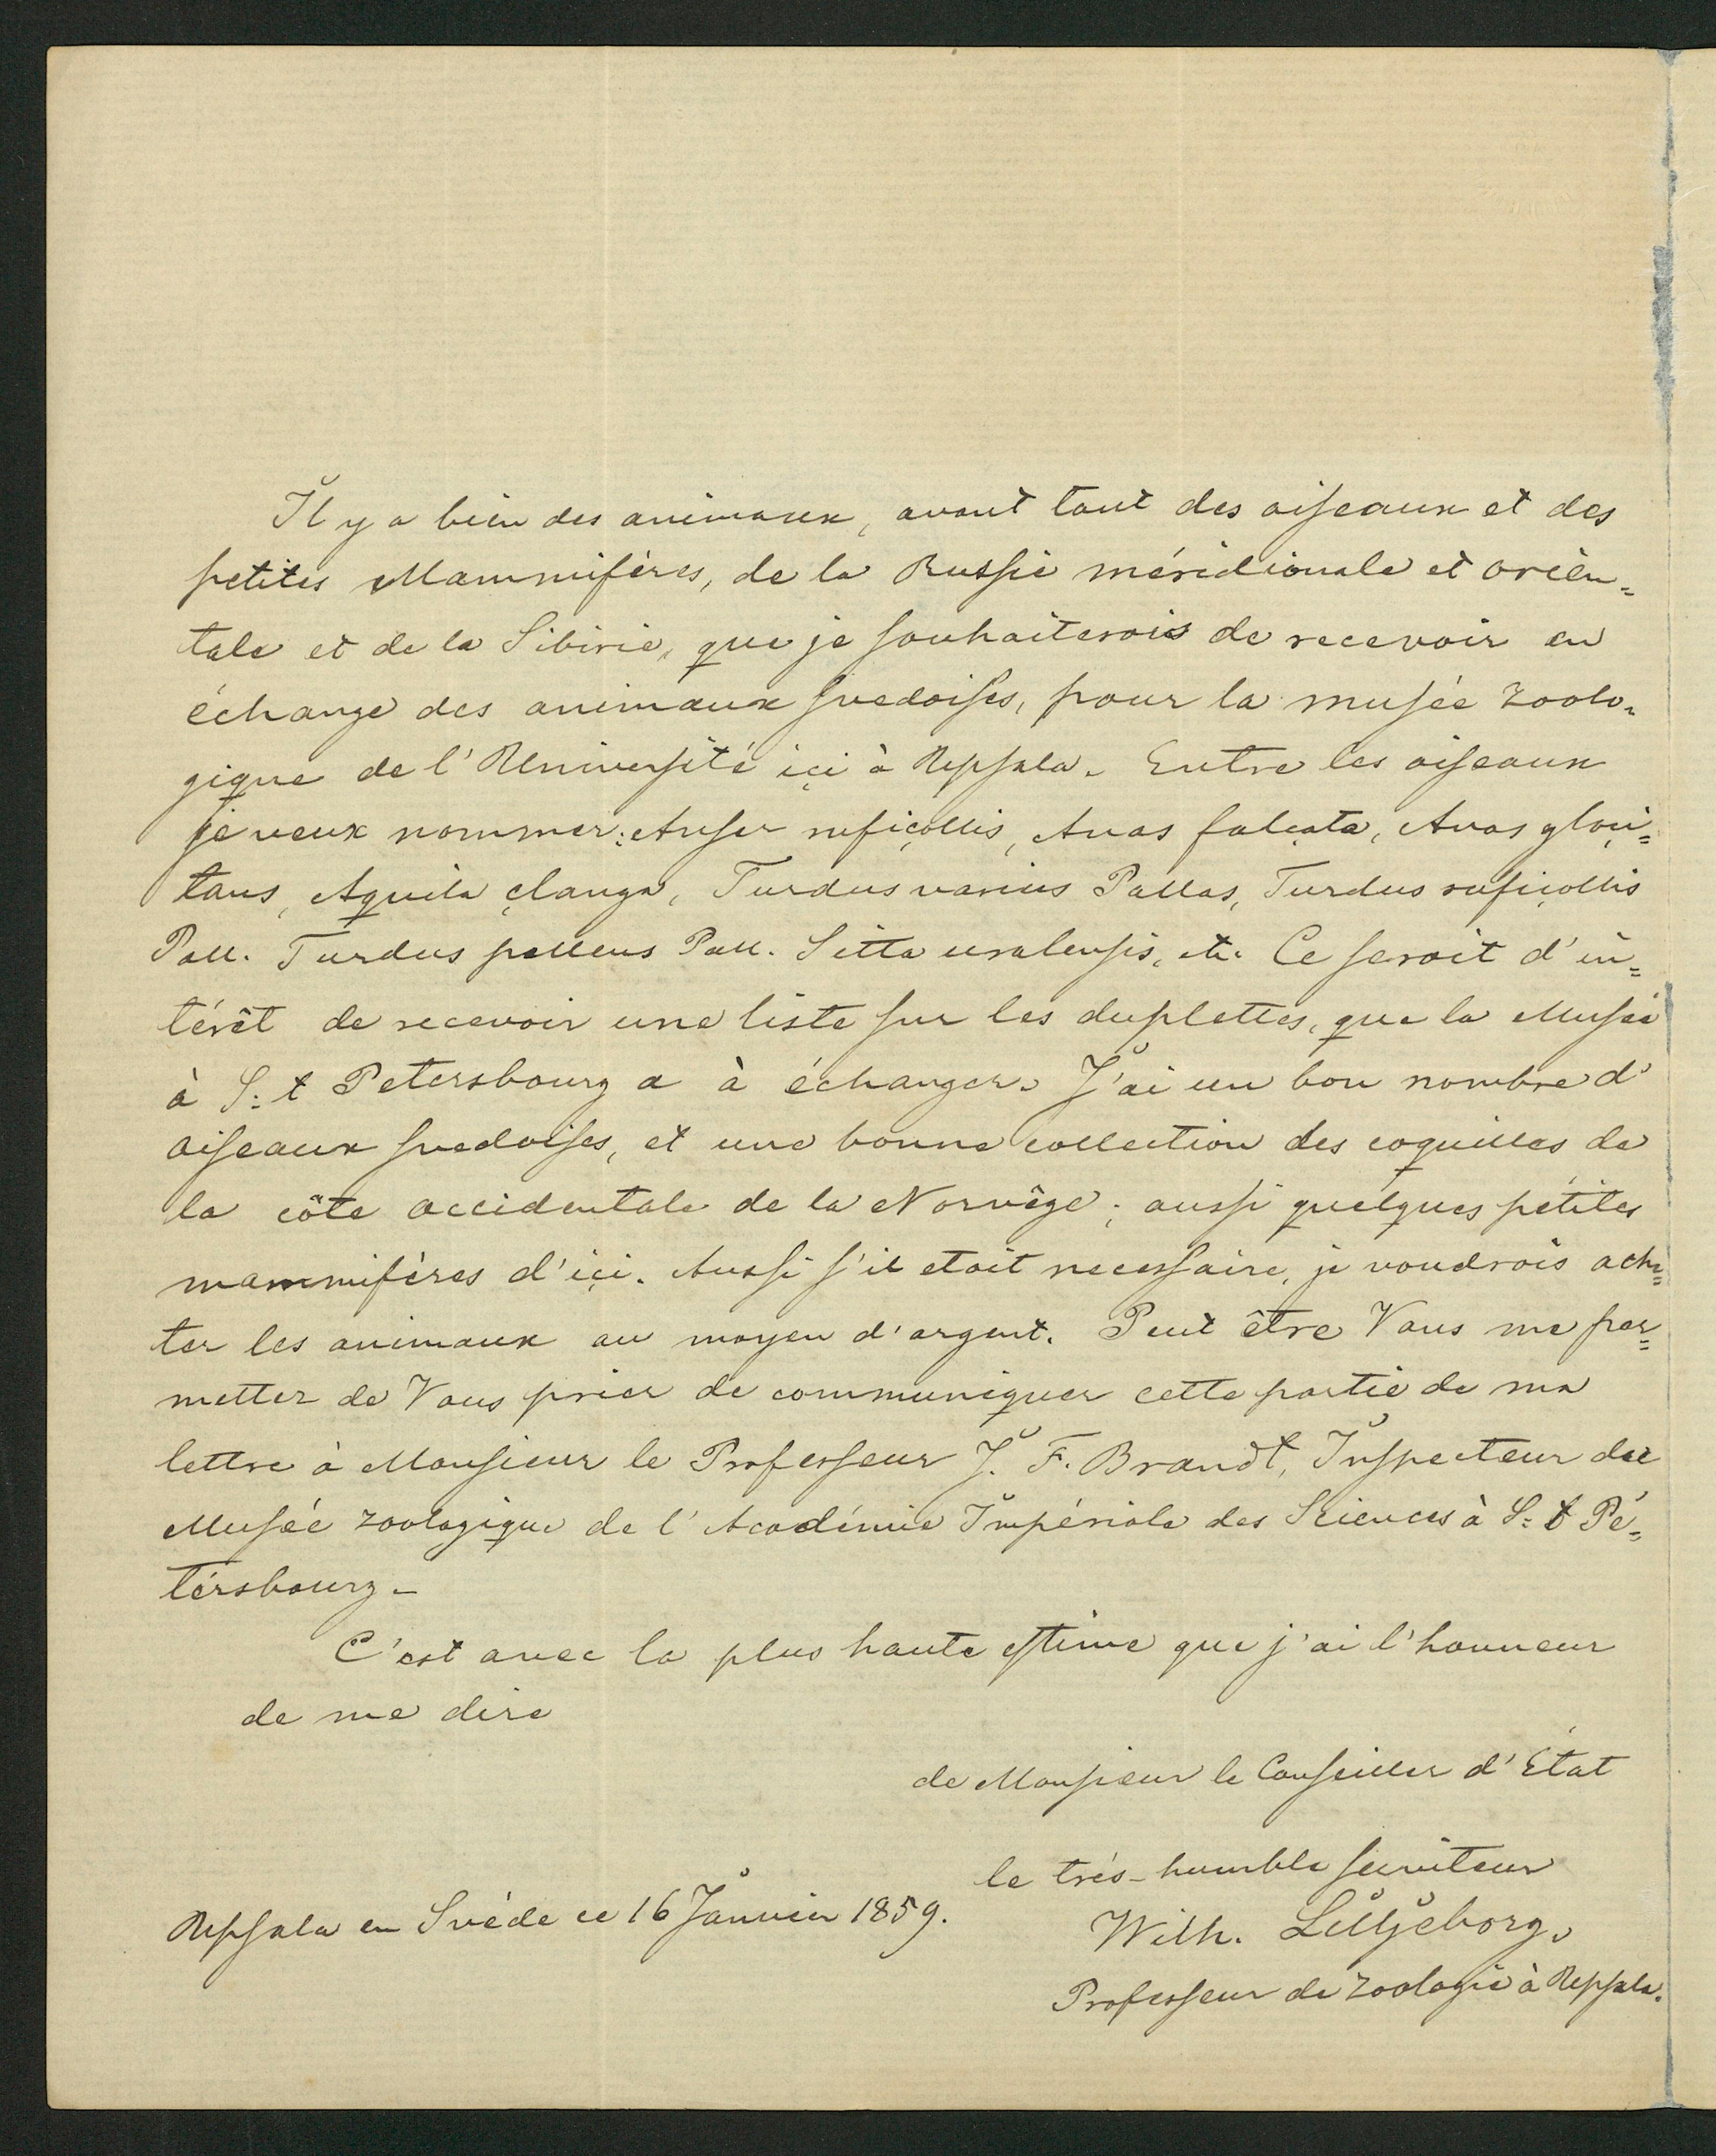 Il y a bien des animaux, avant tout des oiseaux et des
petites Mammifères, de la Russie méridionale et orien=
tale et de la Sibirie, que je souhaiterois de recevoir en
échange des animaux svedoises, pour la musée zoolo=
gique de l'Université içi à Upsala. Entre les oiseaux
je veux nommer: Anser rufiçollis, Anas falcata, Anas gloçi=
tans, Aquila çlanga, Turdus varius Pallas, Turdus rufiçollis
Pall. Turdus pallens Pall. Sitta uralensis, etc. Ce seroit d'in=
térêt de recevoir une liste sur les duplettes, que la Musée
à S:t Petersbourg a à échanger. J'ai un bon nombre d'
oiseaux svedoises, et une bonne collection des coquilles de
la côte occidentale de la Norvège; aussi quelques pétites
mammifères d'içi. Aussi s'il etoit necessaire, je voudrois ache=
ter les animaux au moyen d'argent. Peut être Vous me per=
metter de Vous prier de communiquer cette partie de ma
lettre à Monsieur le Professeur J. F. Brandt, Inspecteur du
Musée zoologique de l'Académie Impériale des Sciences à S:t Pé=
tersbourg.
C'est avec la plus haute estime que j'ai l'honneur
de me dire
de Monsieur le Conseiller d'État
le trés-humble serviteur
Upsala en Svède ce 16 Janvier 1859.
Wilh. Lilljeborg.
Professeur de zoologie à Upsala.